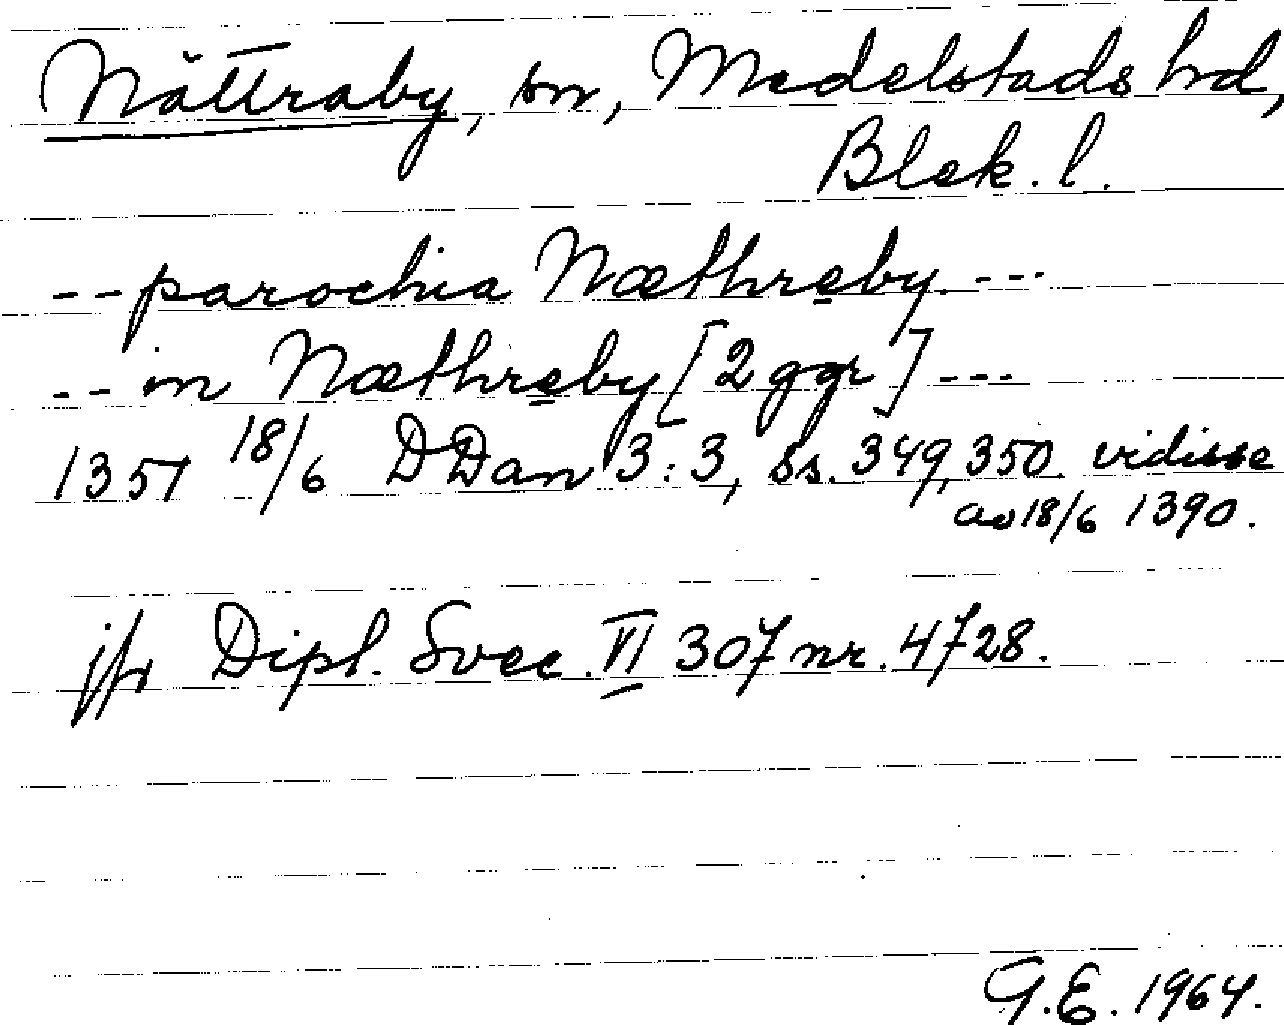 Nättraby, sn, Medelstads hrd,
Blek. l.
-- parochia Næthreby. ---
-- in Næthreby [2 ggr] ---
1351 18/6 DDan 3:3, ss. 349, 350. vidisse
av 18/6 1390.
jfr Dipl. Svec. VI 307 nr. 4728.
G.E. 1964.